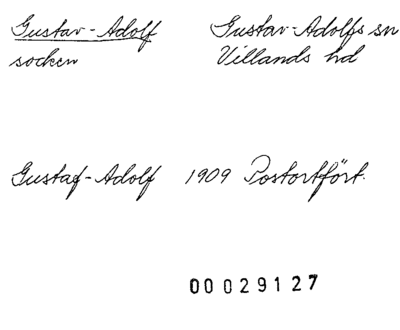 Gustav-Adolf Gustav-Adolfs sn
socken Villands hd
Gustaf-Adolf 1909 Postortfört.
00029127